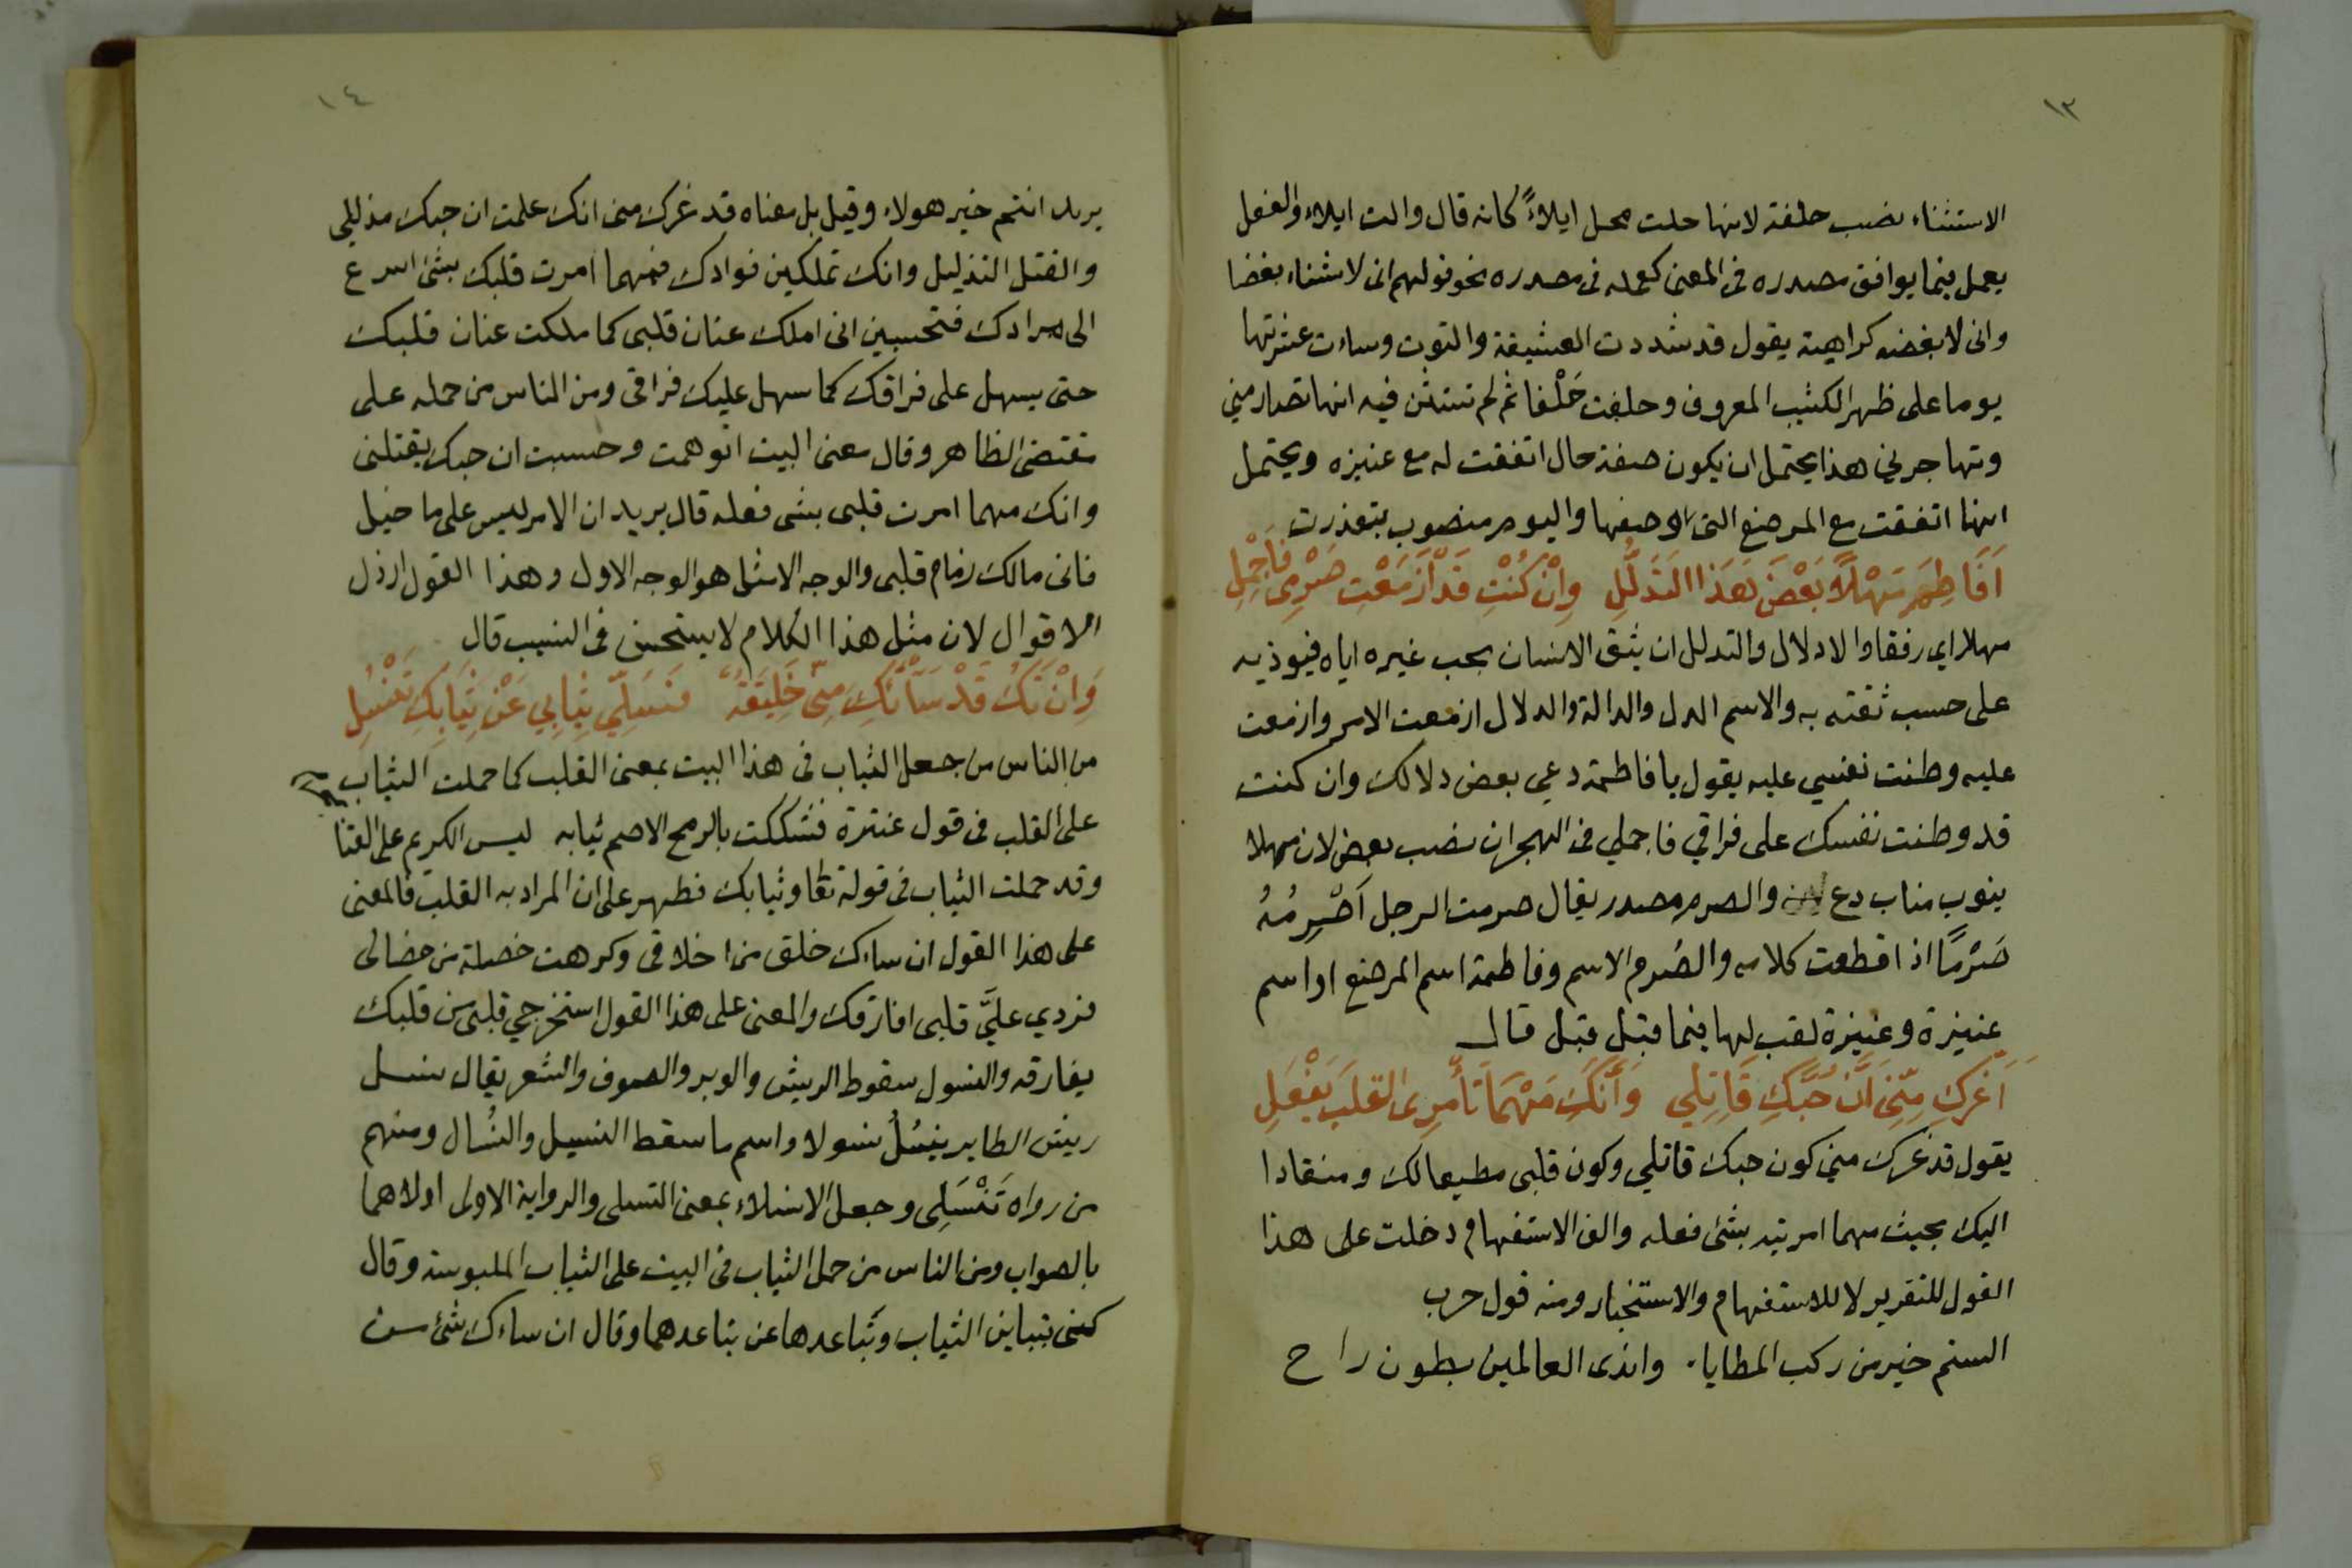 ١٣
الاستثناء نصب حلفة لانها حلت محل ايلاءً كانه قال والت ايلاء والفعل
يعمل فيما يوافق مصدره فى المعنى كعمله فى مصدره نحو قولهم انى لاشناءه بغضا
وانى لابغضه كراهية يقول قد شددت العشيقة والتوت وساءت عشرتها
يوما على ظهر الكثيب المعروف وحلفت حَلْفا ثم لم تستثن فيه انها تصارمني
وتهاجرني هذا يحتمل ان يكون صفة حال اتفقت له مع عنيزه ويحتمل
انها اتفقت مع المرضع التى وصفها واليوم منصوب بتعذرت
اَفَاطِمَ مَهْلاً بَعْضَ هَذَا التَدَلُّلِ وِاِنْ كُنْتِ قَدْ اَزمَعْتِ صَرْمِى فَاَجْمِلِ
مهلا اي رفقا والادلال والتدلل ان يثق الانسان بحب غيره اياه فيوذيه
على حسب ثقته به والاسم الدل والدالة والدلال ازمعت الامر وازمعت
عليه وطنت نفسي عليه يقول يا فاطمة دعي بعض دلالك وان كنت
قد وطنت نفسك على فراقي فاجملي فى الهجران نصب بعض لان مهلا
ينوب مناب دع والصرم مصدر يقال صرمت الرجل اَصْرِمُهُ
صَرْمًا اذا قطعت كلامه والصُرم الاسم وفاطمة اسم المرضع او اسم
عنيزة وعنيزة لقب لها فيما قيل قبل قال
اَغَرَّكِ مِنّى اَنَّ حُبَّكِ قَاتِلي وَاَنَّكِ مَهْمَا تَأْمرِى القلبَ يَفْعَلِ
يقول قد غرك مني كون حبك قاتلي وكون قلبى مطيعا لك ومنقادا
اليك بحيث مهما امرتيه بشئ فعله والف الاستفهام دخلت على هذا
القول للتقرير لا للاستفهام والاستخبار ومنه قول حرب
الستم خير من ركب المطايا. واندى العالمين بطون راح
١٤
يريد انتم خير هولاء وقيل بل معناه قد غرك منى انك علمت ان حبك مذللي
والقتل التذليل وانك تملكين فوادك فمهما امرت قلبك بشئ اسرع
الى مرادك فتحسبين انى املك عنان قلبى كما ملكت عنان قلبك
حتى يسهل على فراقك كما سهل عليك فراقى ومن الناس من حمله على
مقتضى الظاهر وقال معنى البيت اتوهمت وحسبت ان حبك يقتلنى
وانك مهما امرت قلبى بشى فعله قال يريد ان الامر ليس على ما خيل
فانى مالك زمام قلبى والوجه الامثل هو الوجه الاول وهذا القول ارذل
الاقوال لان مثل هذا الكلام لا يستحسن فى النسيب قال
وَاِنْ تَكُ قَدْ سَآتْكِ مِنّى خَلِيقَةٌ فَسَلّي ثِيَابِي عَنْ ثِيَابِكِ تَنْسُلِ
من الناس من جعل الثياب فى هذا البيت بمعنى القلب كما حملت الثياب
على القلب فى قول عنترة فشككت بالرمح الاصم ثيابه ليس الكريم على القنا
وقد حملت الثياب فى قوله تعا وثيابك فطهر على ان المراد به القلب فالمعنى
على هذا القول ان ساءك خلق من اخلاقى وكرهت خصلة من خصالى
فردي عليَّ قلبى افارقك والمعنى على هذا القول استخرجي قلبى من قلبك
يفارقه والنسول سقوط الريش والوبر والصوف والشعر يقال نسل
ريش الطاير ينسُلُ نسولا واسم ما سقط النسيل والنُسال ومنهم
من رواه تَنْسَلِى وجعل الانسلاء بمعنى التسلى والرواية الاولى اولاهما
بالصواب ومن الناس من حمل الثياب فى البيت على الثياب الملبوسة وقال
كنى بتباين الثياب وتباعدها عن تباعدهما وقال ان ساءك شئ من